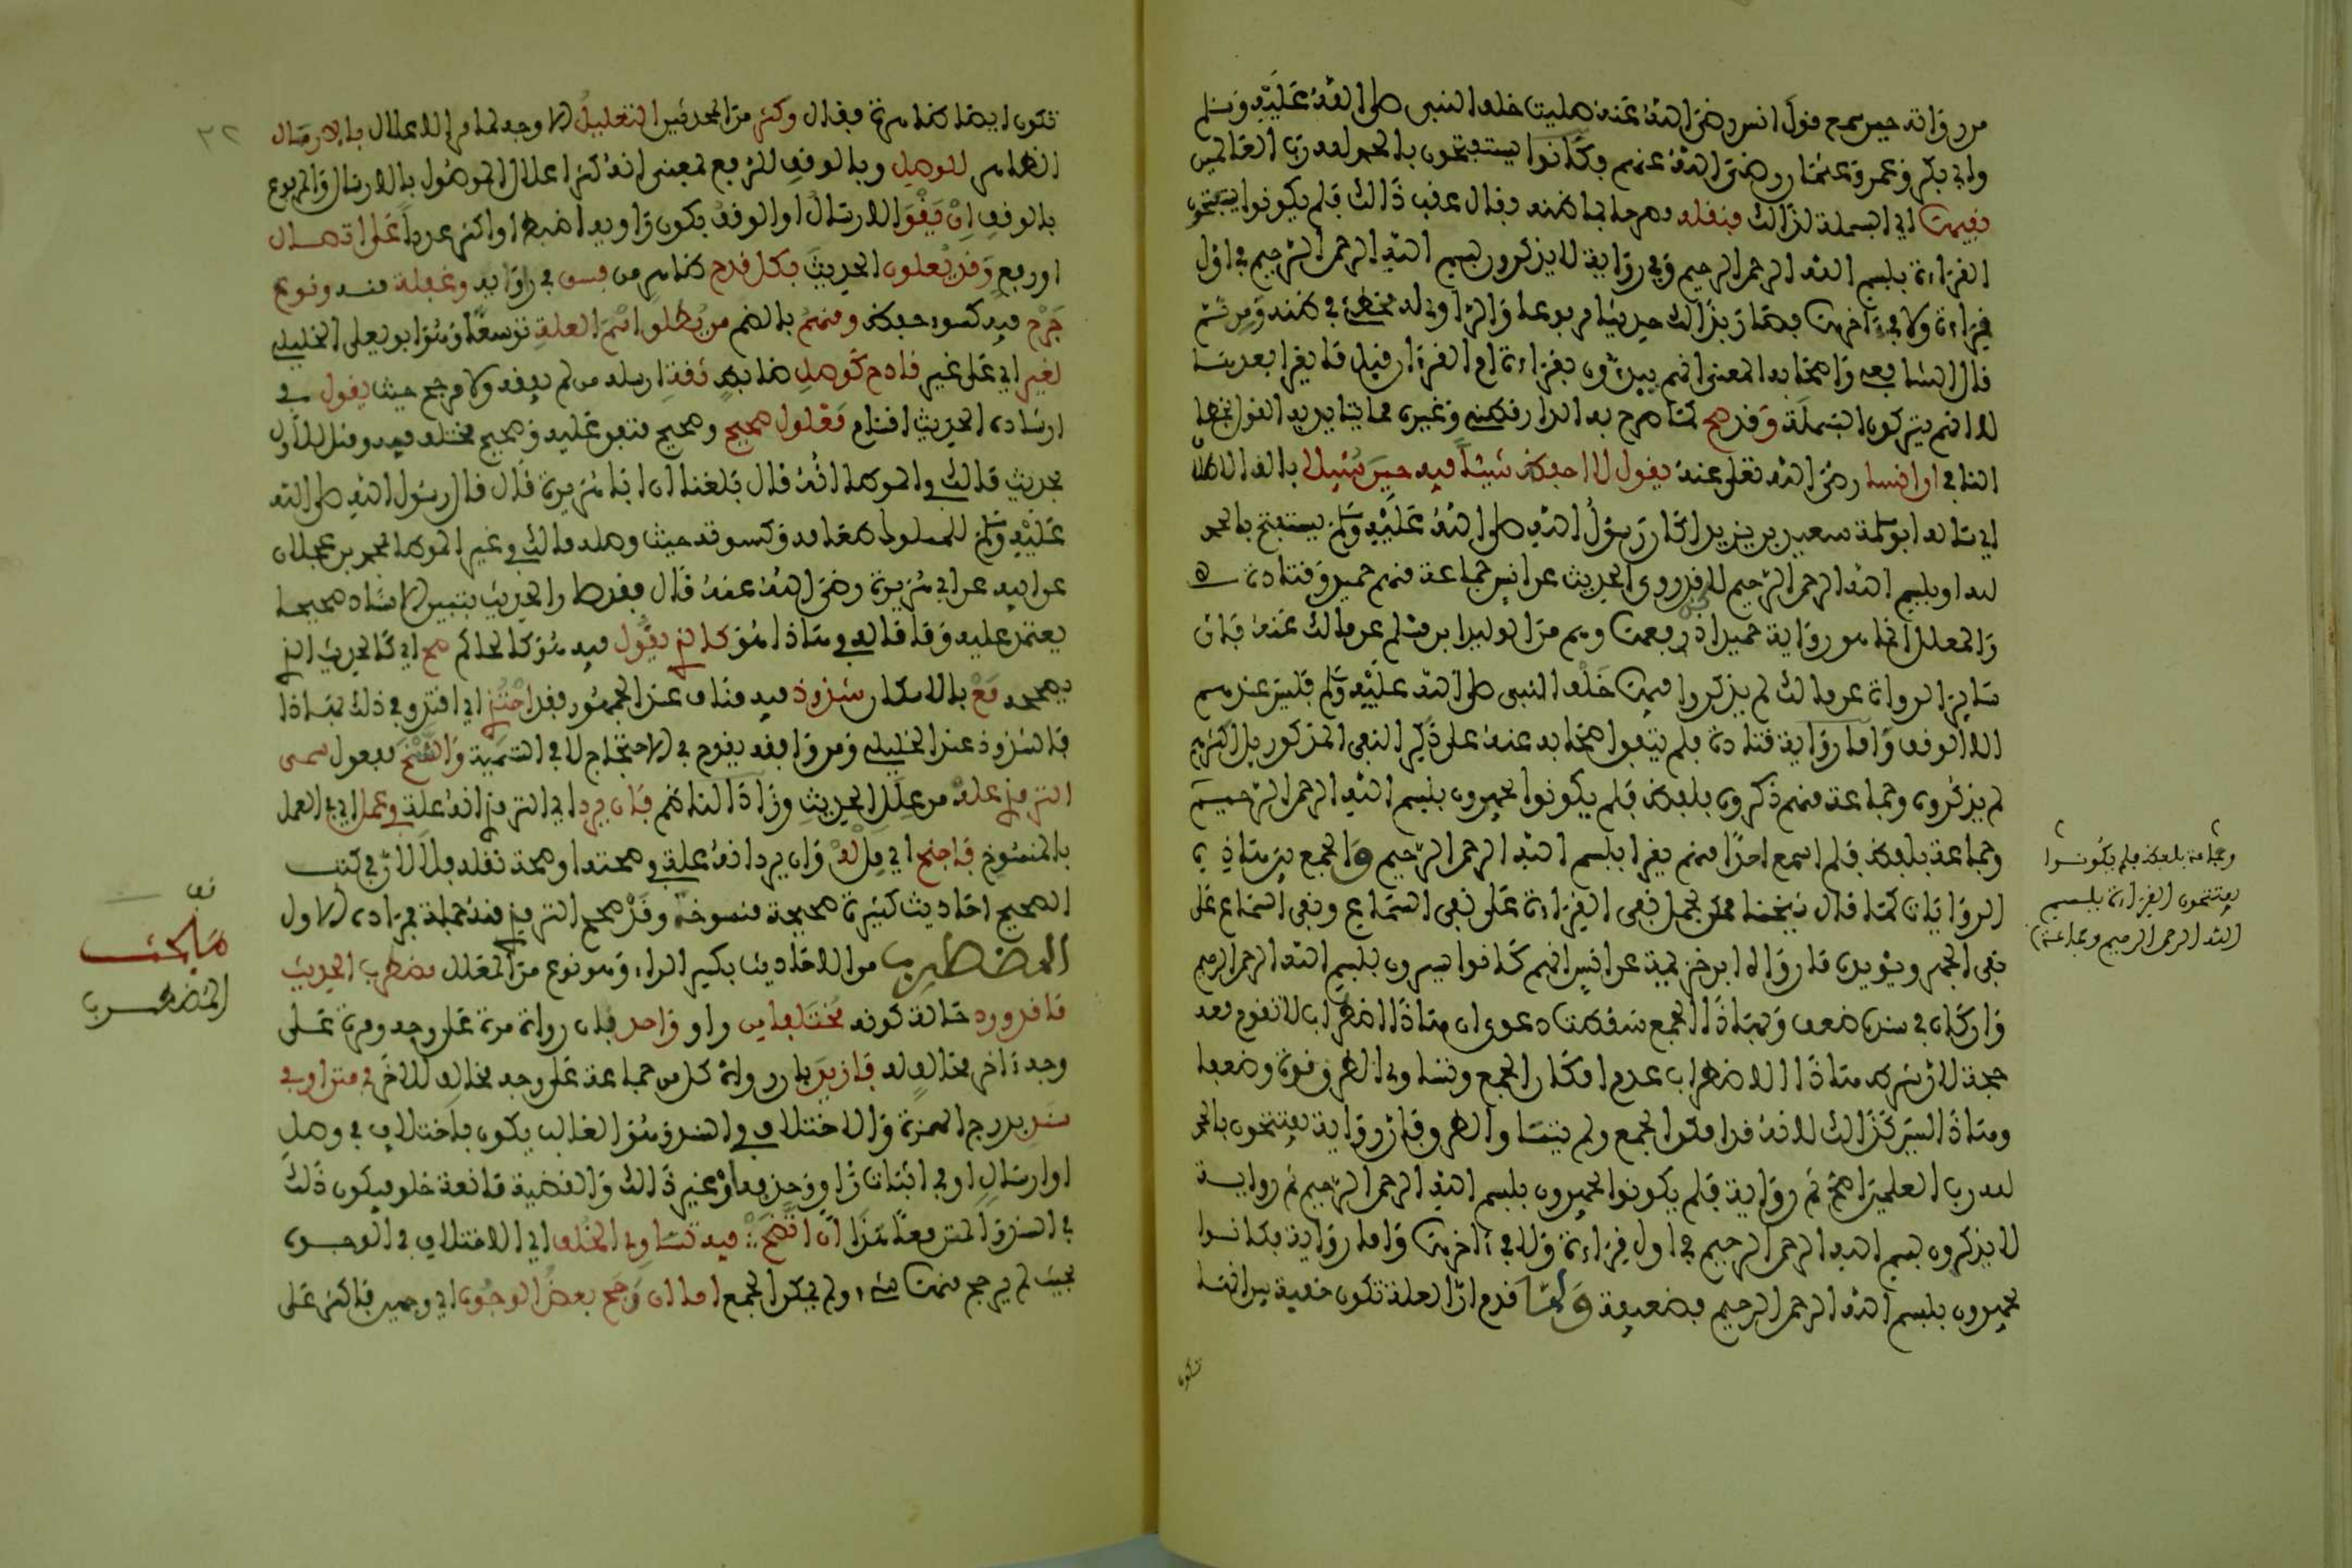 من رواته حين سمع قول انس رضي الله عنه صليت خلف النبي صلى الله عليه وسلم
وابي بكر وعمر وعثمان رضي الله عنهم فكانوا يستفتحون بالحمد لله رب العالمين
نفيها اي البسملة لذالك فنقله مصرحا بما ظنه وقال عقب ذالك فلم يكونوا يستفتحون
القراءة ببسم الله الرحمن الرحيم وفي رواية لا يذكرون بسم الله الرحمن الرحيم في اول
قراءة ولا في ءاخرها فصار بذالك حديثا مرفوعا والراوي له مخطئ في ظنه ومن ثم
قال الشافعي واصحابه المعنى انهم يبدءون بقراءة ام القرءان قبل ما يقرا بعدها
لا انهم يتركون البسملة وقد صح كما صرح به الدارقطني وغيره مما يتايد به القول بخطا
النافي ان انسا رضي الله تعلى عنه يقول لا احفظ شيئا فيه حين سئلا بالف الاطلاق
اي ساله ابو سلمة سعيد بن يزيد اكان رسول الله صلى الله عليه وسلم يستفتح بالحمد
لله او ببسم الله الرحمن الرحيم لا قد روى الحديث عن انس جماعة منهم حميد وقتادة
والمعلل انما هو رواية حميد اذ رفعها وهم من الوليد بن مسلم عن مالك عنه فان
سائر الرواة عن مالك لم يذكروا فيها خلف النبي صلى الله عليه وسلم فليس عندهم
الا الوقف واما رواية قتادة فلم يتفق اصحابه عنه على ذكر النفي المذكور بل اكثرهم
لم يذكروه وجماعة منهم ذكروه بلفظ فلم يكونوا يجهرون ببسم الله الرحمن الرحيم
وجماعة بلفظ فلم اسمع احدا منهم يقرا ببسم الله الرحمن الرحيم والجمع بين هاذه
الروايات كما قال شيخنا ممكن بحمل نفي القراءة على نفي السماع ونفي السماع على
نفي الجهر ويؤيده ما رواه ابن خزيمة عن انس انهم كانوا يسرون ببسم الله الرحمن الرحيم
وان كان في سنده ضعف وبهاذا الجمع سقطت دعوى ان هاذا اضطراب لا تقوم معه
حجة لان شرط هاذا الاضطراب عدم امكان الجمع وتساوي الطرق قوة وضعفا
وهاذا ليس كذالك لانه قد امكن الجمع ولم تتساو الطرق فان رواية يفتتحون بالحمد
لله رب العلمين اصح ثم رواية فلم يكونوا يجهرون ببسم الله الرحمن الرحيم ثم رواية
لا يذكرون بسم الله الرحمن الرحيم في اول قراءة ولا في ءاخرها واما رواية فكانوا
يجهرون ببسم الله الرحمن الرحيم فضعيفة ولما قدم ان العلة تكون خفية بين انها
تكون
وجماعة بلفظ فلم يكونوا
يفتتحون القراءة ببسم
الله الرحمن الرحيم وجماعة
٣٢
تكون ايضا ظاهرة فقال وكثر من المحدثين التعليل الاوجه لما مر الاعلال بالارسال
الظاهر للوصل وبالوقف للرفع بمعنى انه كثر اعلال الموصول بالارسال والمرفوع
بالوقف ان يقو الارسال او الوقف بكون راويه اضبط او اكثر عددا على اتصال
او رفع وقد يعلون الحديث بكل قدح ظاهر من فسق في راويه وغفلة منه ونوع
جرح فيه كسوء حفظ ومنهم بالضم من يطلق اسم العلة توسعا وهو ابو يعلى الخليلي
لغير اي على غير قادح كوصل ضابط ثقة ارسله من لم يفقه ولا مرجح حيث يقول في
ارشاده الحديث اقسام معلول صحيح وصحيح متفق عليه وصحيح مختلف فيه ومثل للاول
بحديث مالك في الموطا انه قال بلغنا ان ابا هريرة قال قال رسول الله صلى الله
عليه وسلم للمملوك طعامه وكسوته حيث وصله مالك في غير الموطا بمحمد بن عجلان
عن ابيه عن ابي هريرة رضي الله عنه قال فقد صار الحديث بتبيين الاسناد صحيحا
يعتمد عليه وما قاله في هاذا هو كالذي يقول فيه هو كالحاكم صح اي كالحديث الذي
يصححه مع بالاسكان شذوذ فيه مناف عند الجمهور فقد احتذي اي اقتدي في ذلك بهاذا
فالشذوذ عند الخليلي ومن وافقه يقدح في الاحتجاج لا في التسمية والنسخ مفعول سمى
الترمذي علة من علل الحديث وزاد الناظم فان يرد اي الترمذي انه علة في عمل اي في العمل
بالمنسوخ فاجنح اي مل له وان يرد انه علة في صحته او صحة نقله فلا لان في كتب
الصحيح احاديث كثيرة صحيحة منسوخة وقد صحح الترمذي منه جملة فمراده الاول
المضطرب من الاحاديث بكسر الراء وهو نوع من المعلل مضطرب الحديث
ما قد ورد حالة كونه مختلفا من راو واحد بان رواه مرة على وجه ومرة على
وجه ءاخر مخالف له فازيد بان رواه كل من جماعة على وجه مخالف للاخر في متن او في
سند بدرج الهمزة والاختلاف في السند وهو الغالب يكون باختلاف في وصل
او ارسال او في اثبات راو وحذفه او غير ذالك والقضية مانعة خلو فيكون ذلك
في السند والمتن معا هذا ان اتضح فيه تساوي الخلف اي الاختلاف في الوجوه
بحيث لم يرجح منها شيء ولم يمكن الجمع اما ان رجح بعض الوجوه اي وجهين فاكثر على
قف
مبحث
المضطرب